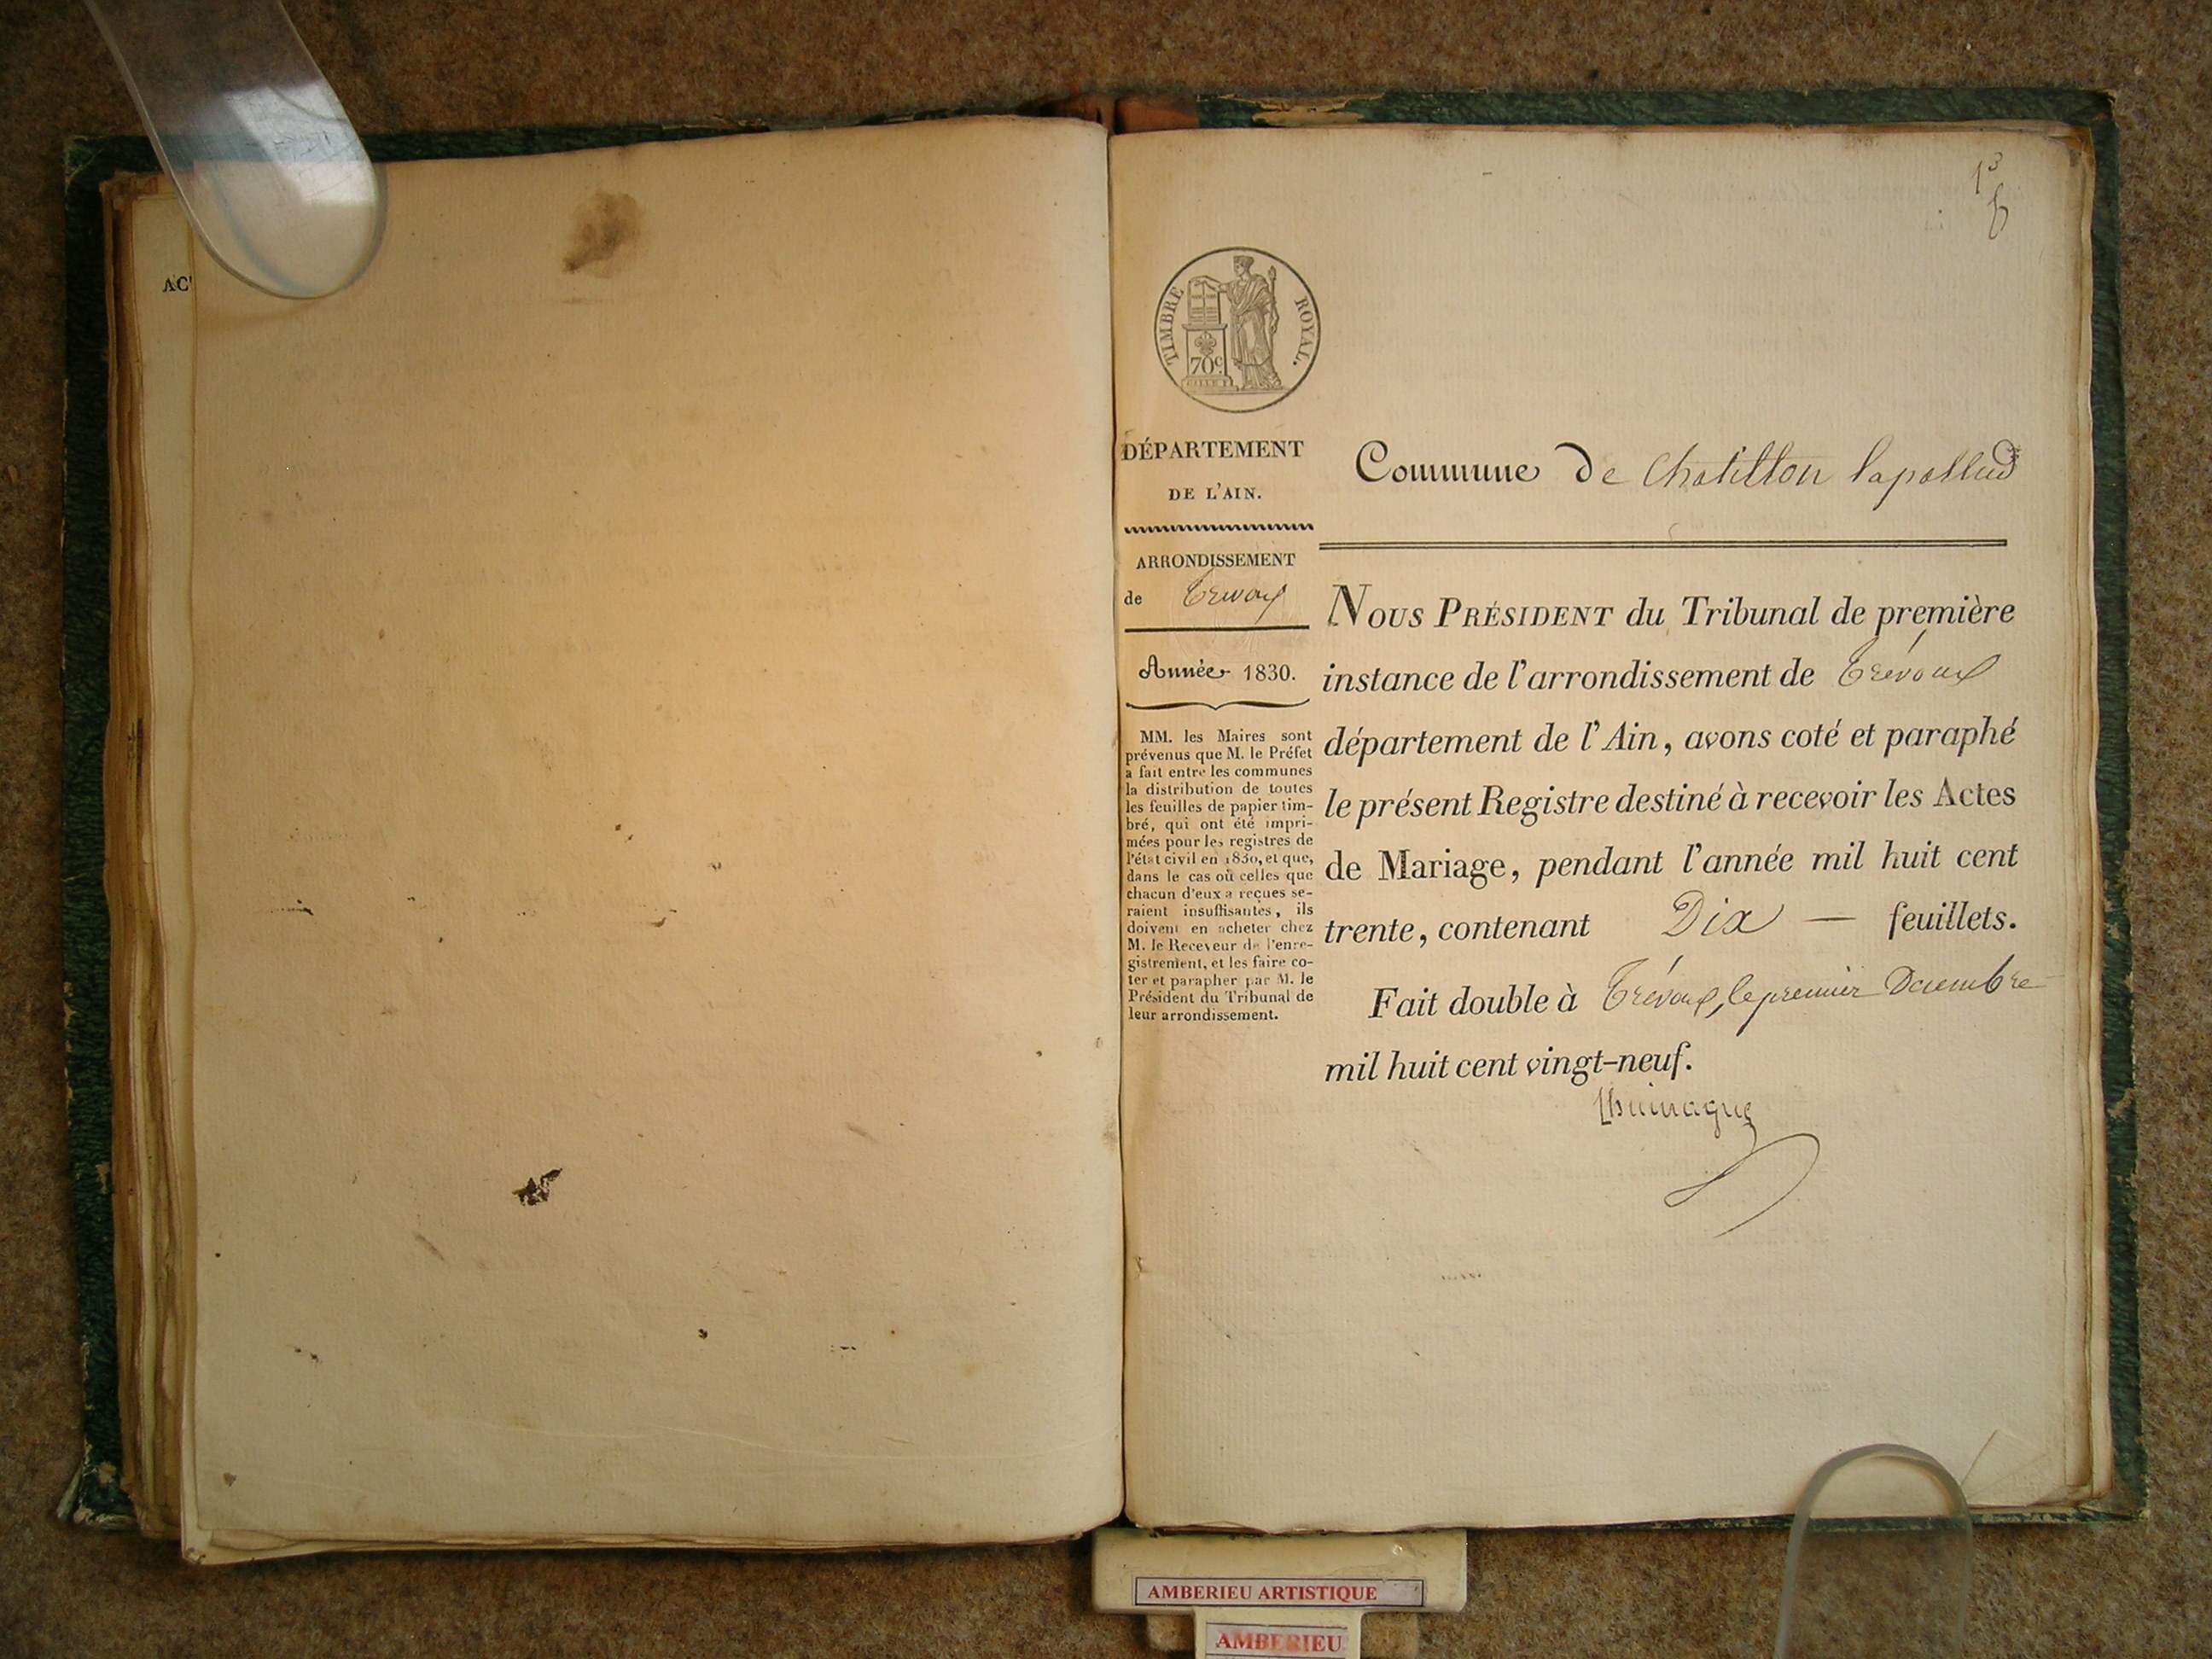 AC
1
TIMBRE ROYAL.
70c.
DÉPARTEMENT
DE L'AIN.
ARRONDISSEMENT
de Trévoux
Année 1830.
MM. les Maires sont
prévenus que M. le Préfet
a fait entre les communes
la distribution de toutes
les feuilles de papier tim-
bré, qui ont été impri-
mées pour les registres de
l'état civil en 1830, et que,
dans le cas où celles que
chacun d'eux a reçues se-
raient insuffisantes, ils
doivent en acheter chez
M. le Receveur de l'enre-
gistrement, et les faire co-
ter et parapher par M. le
Président du Tribunal de
leur arrondissement.
Commune de Chatillon lapallud
NOUS PRÉSIDENT du Tribunal de première
instance de l'arrondissement de Trévoux
département de l'Ain, avons coté et paraphé
le présent Registre destiné à recevoir les Actes
de Mariage, pendant l'année mil huit cent
trente, contenant Dix — feuillets.
Fait double à Trévoux, le premier Decembre
mil huit cent vingt-neuf.
AMBERIEU ARTISTIQUE
AMBERIEU